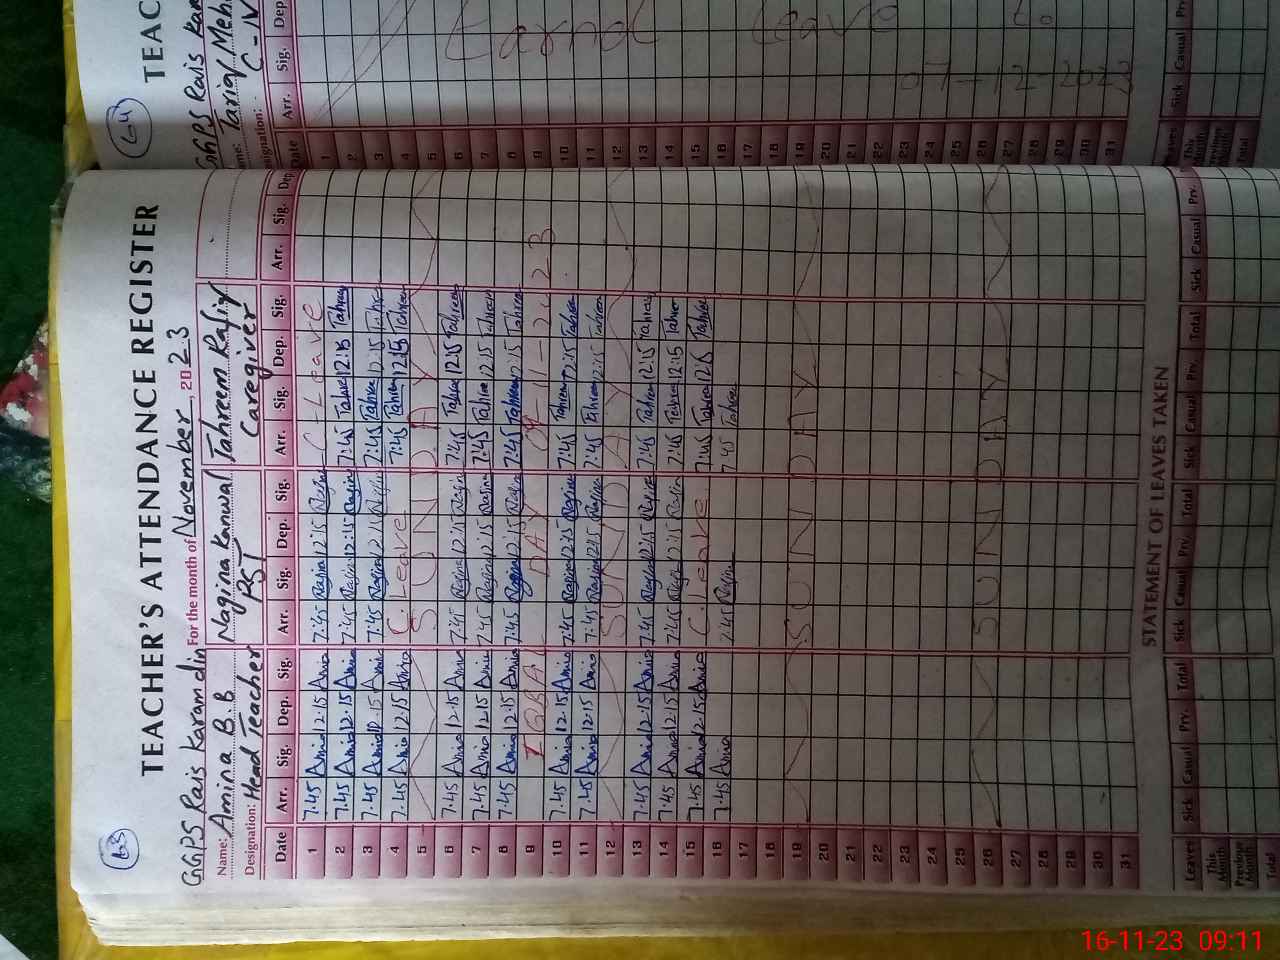 63
TEACHER'S ATTENDANCE REGISTER
GGPS Rais Karam din For the month of November, 2023
Name: Amina B.B Nagina Kanwal Tahreem Rafiq
Designation: Head Teacher PST Caregiver
Date Arr. Sig. Dep. Sig. Arr. Sig. Dep. Sig. Arr. Sig. Dep. Sig. Arr. Sig. Dep.
1 7:45 Amna 12:15 Amna 7:45 Nagina 12:15 Nagina C-Leave
2 7:45 Amna 12:15 Amna 7:45 Nagina 12:15 Nagina 7:45 Tahree 12:15 Tahreem
3 7:45 Amna 12:15 Amna 7:45 Nagina 12:15 Nagina 7:45 Tahreem 12:15 Tahreem
4 7:45 Amna 12:15 Amna C.Leave 7:45 Tahreem 12:15 Tahreem
5 SUNDAY
6 7:45 Amna 12:15 Amna 7:45 Nagina 12:15 Nagina 7:45 Tahree 12:15 Tahreem
7 7:45 Amna 12:15 Amna 7:45 Nagina 12:15 Nagina 7:45 Tahree 12:15 Tahreem
8 7:45 Amna 12:15 Amna 7:45 Nagina 12:15 Nagina 7:45 Tahreem 12:15 Tahreem
9 IQBAL DAY 09-11-2023
10 7:45 Amna 12:15 Amna 7:45 Nagina 12:15 Nagina 7:45 Tahreem 12:15 Tahreem
11 7:45 Amna 12:15 Amna 7:45 Nagina 12:15 Nagina 7:45 Tahreem 12:15 Tahreem
12 SUNDAY
13 7:45 Amna 12:15 Amna 7:45 Nagina 12:15 Nagina 7:45 Tahreem 12:15 Tahreem
14 7:45 Amna 12:15 Amna 7:45 Nagina 12:15 Nagina 7:45 Tahreem 12:15 Tahree
15 7:45 Amna 12:15 Amna C.Leave 7:45 Tahreem 12:15 Tahree
16 7:45 Amna 7:45 Nagina 7:45 Tahree
17
18
19 SUNDAY
20
21
22
23
24
25
26 SUNDAY
27
28
29
30
31
STATEMENT OF LEAVES TAKEN
Leaves Sick Casual Prv. Total Sick Casual Prv. Total Sick Casual Prv. Total Sick Casual Prv.
This Month
Previous Month
Total
64
TEAC
GGPS Rais Kar
Name: Tariq Meh
Designation: C-IV
Date Arr. Sig. Dep
1
2
3
4
5
6
7
8
9
10
11
12
13
14
15
16
17
18
19
20
21
22
23
24
25
26
27
28
29
30
31
Leave to
07-12-2023
Leaves Sick Casual Prv
This Month
Previous Month
Total
16-11-23 09:11